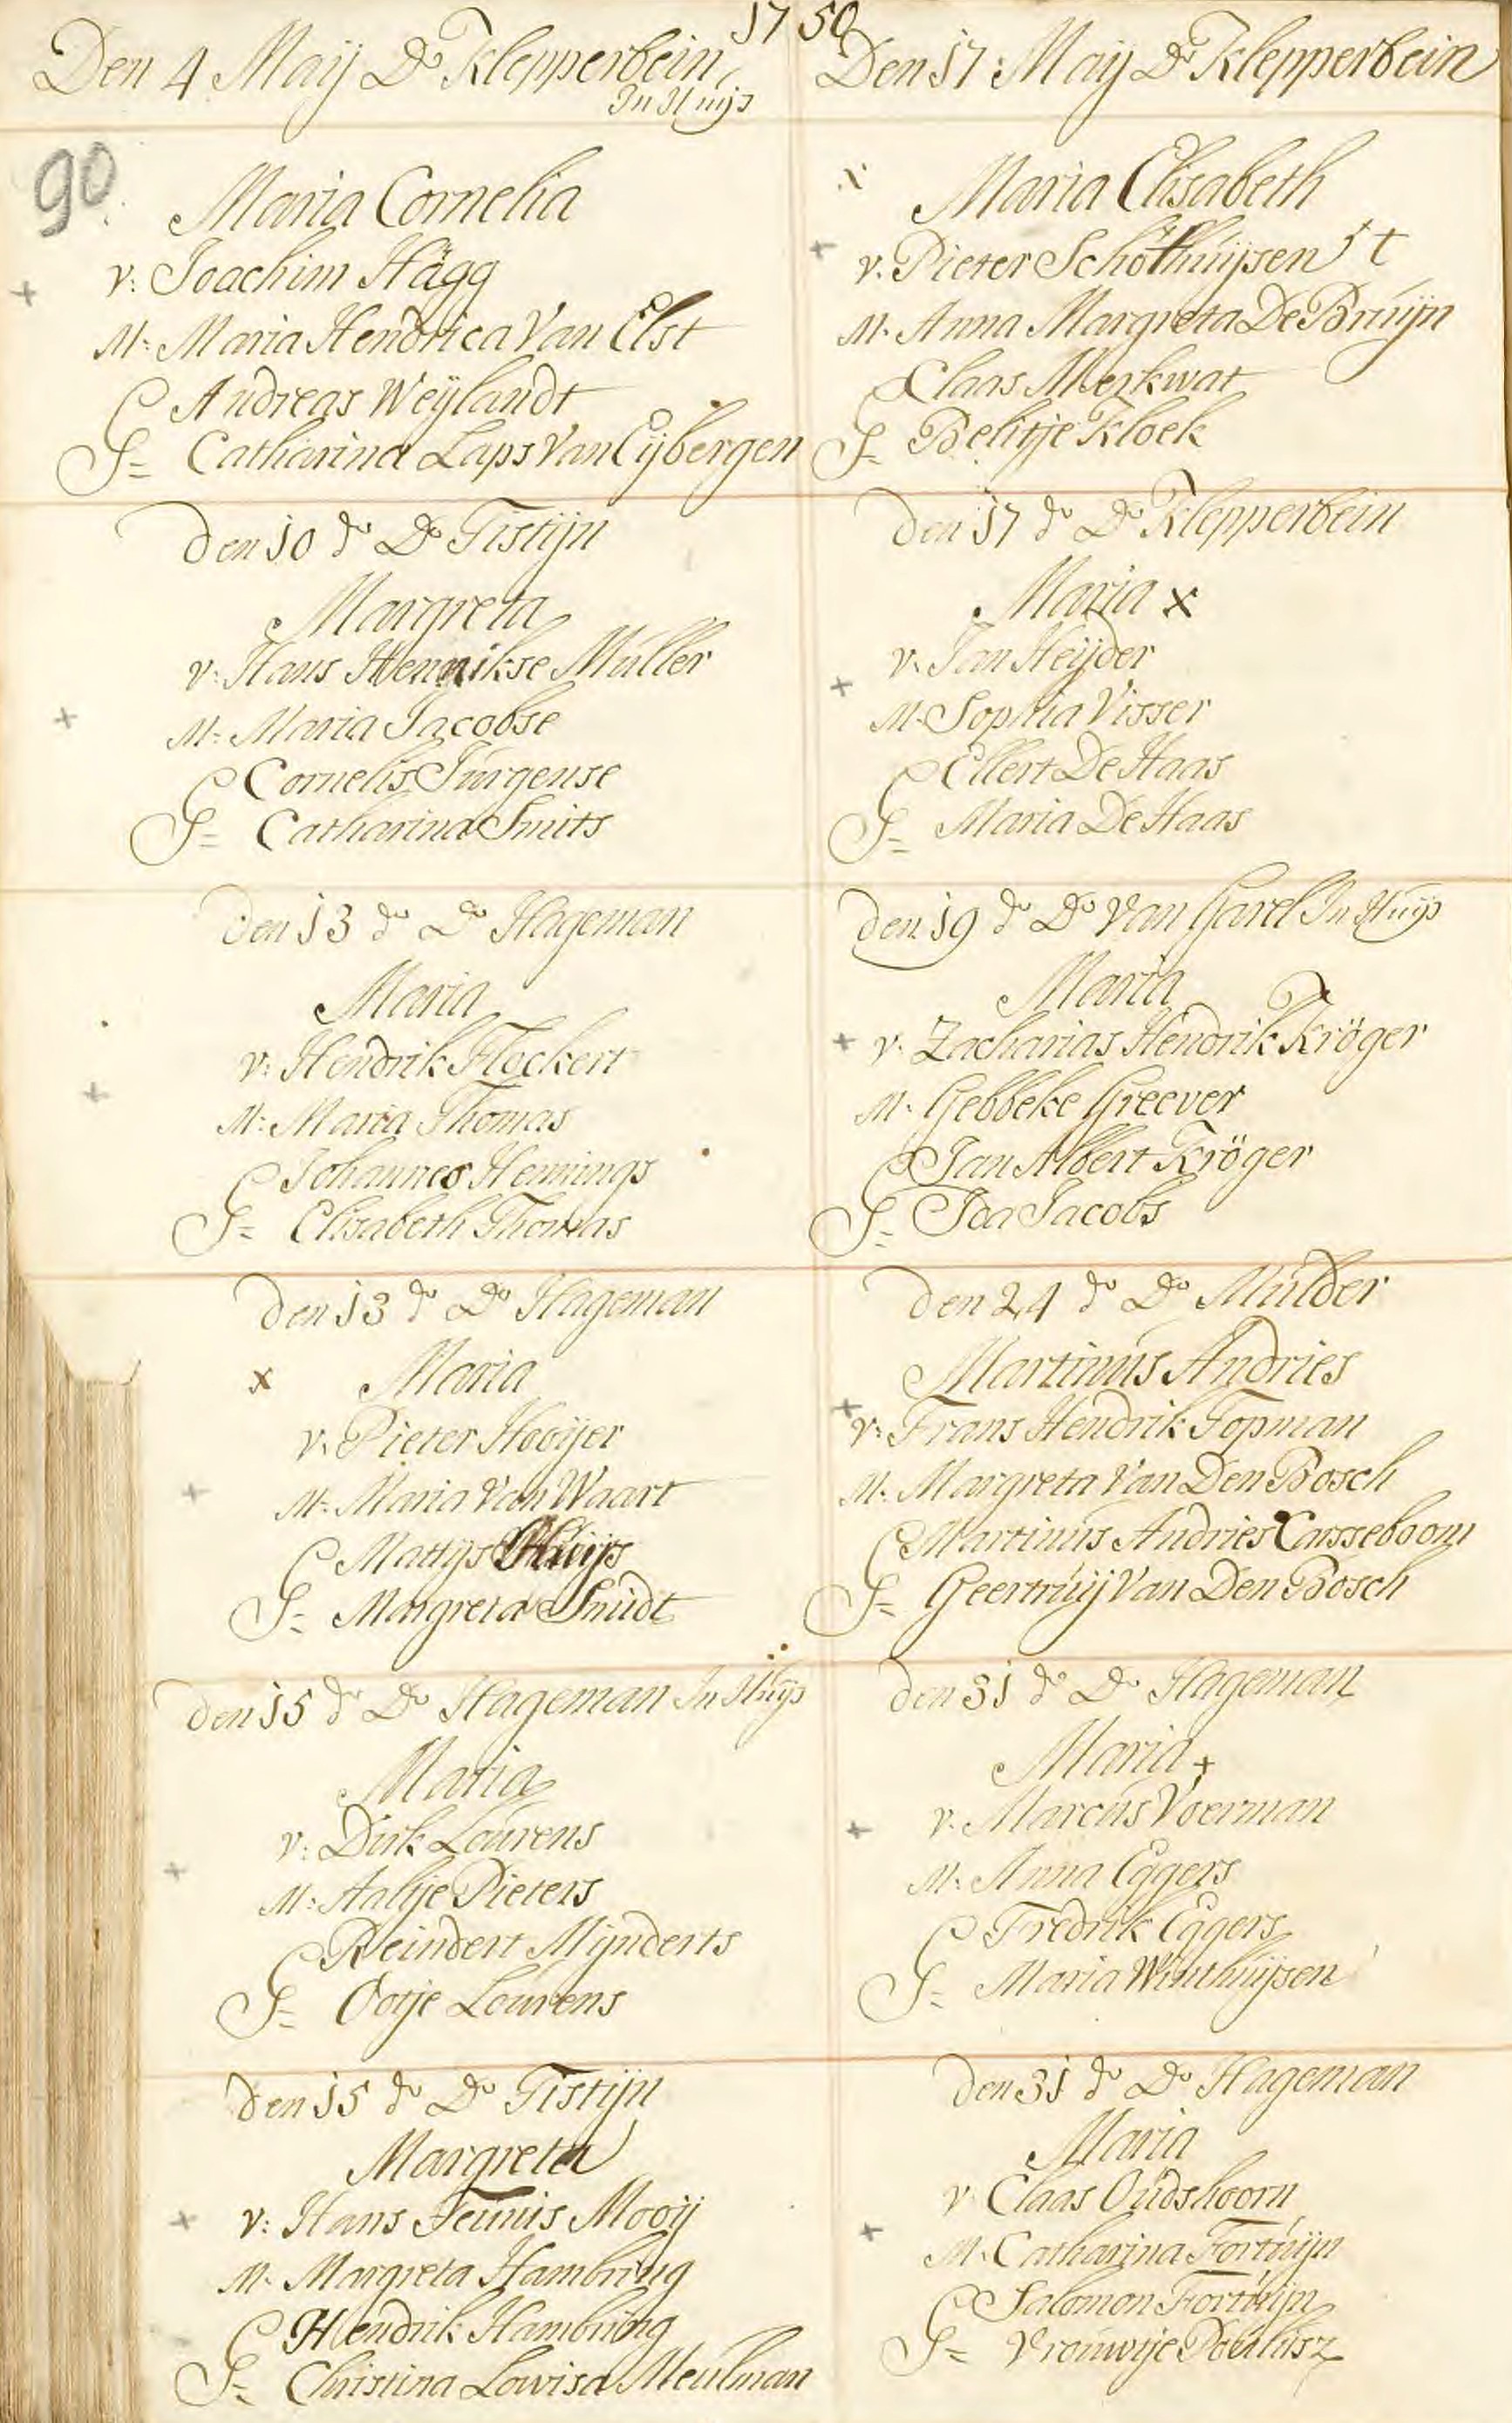 1750
Den 4 Maij Do Klepperbein
In Huijs
90
Maria Cornelia
v: Joachim Hägg
M: Maria Hendrica Van Elst
Andreas Weÿlandt
G= Catharina Laps Van Eijbergen
Den 10 do Do Tistijn
Margreta
v: Hans Hennikse Muller
M: Maria Jacobse
Cornelis Jurgense
G= Catharina Smits
Den 13 do Do Hageman
Maria
v: Hendrik Flockert
M: Maria Thomas
Johannes Hennings
G= Elisabeth Thomas
Den 13 do Do Hageman
x Maria
v: Pieter Hooijer
M: Maria Van Waart
Mattijs
G= Margreta Smidt
Den 15 do Do Hageman In Huijs
Maria
v: Dirk Lourens
M: Aaltje Pieters
Reindert Mijnderts
G= Ootje Lourens
Den 15 do Do Tistijn
Margreta
v: Hans Teunis Mooij
M: Margreta Hambring
Hendrik Hambring
G= Christina Lowisa Meulman
Den 17 Maij Do Klepperbein
x Maria Elisabeth
v: Pieter Schothuijsen
M: Anna Margreta De Bruijn
Claas Merkwat
G= Belitje Kloek
Den 17 do Do Klepperbein
Maria x
v: Jan Heijder
M: Sophia Visser
Ellert De Haas
G= Maria De Haas
Den 19 do Do Van Garel In Huijs
Maria
v: Zacharias Hendrik Kröger
M: Gebbeke Greever
Jan Albert Kröger
G= Ida Jacobs
Den 24 do Do Mulder
Martinus Andries
v: Frans Hendrik Topman
M: Margreta Van Den Bosch
Martinus Andries Carsseboom
G= Geertruij Van Den Bosch
Den 31 do Do Hageman
Maria +
v: Marcus Voerman
M: Anna Eggers
Fredrik Eggers
G= Maria Winthuijsen
Den 31 do Do Hageman
Maria
v: Claas Oudshoorn
M: Catharina Fortuijn
Salomon Fortuijn
G= Vrouwtje Poulusz